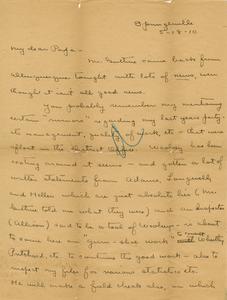 Springerville
5-18-10
My dear Papa -
Mr. Guthrie came back from
Albuquerque tonight with lots of news, even
though it isn't all good news.
You probably remember my mentioning
certain "rumors" regarding my last years party,
its management, quality of work, etc - that were
afloat in the District Office. Woolsey has been
nosing around it seems - and gotten a lot of
written statements from Adams, Longwell,
and Heller which are just absolute lies (Mr.
Guthrie told me what they were) and an Inspector
(Allison) said to be a tool of Woolsey - is about
to come here on gum-shoe work to meet Wheatley,
Pritchard, etc. to continue the good work - also to
inspect my files for various statistics etc.
He will make a field check also, on which